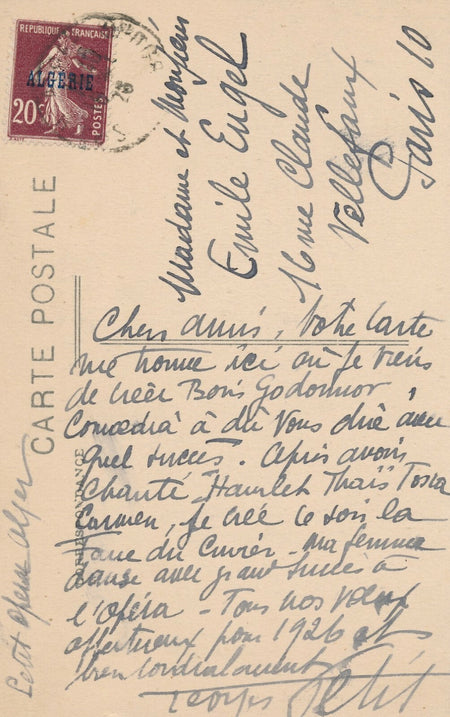 REPUBLIQUE FRANÇAISE
ALGÉRIE
20c
POSTES
CARTE POSTALE
CORRESPONDANCE
Madame et Monsieur
Emile Engel
16 rue Claude
Vellefaux
Paris 10
Chers amis, Votre carte
me trouve ici où je viens
de créer Boris Godounov
Comoedia a dû vous dire avec
quel succès. Après avoir
chanté Hamlet Thaïs Tosca
Carmen, je crée ce soir la
du Cuvier - Ma femme
danse avec grand succès à
l'Opéra - Tous nos vœux
affectueux pour 1926 et
bien cordialement
Georges Petit
Petit opera Alger